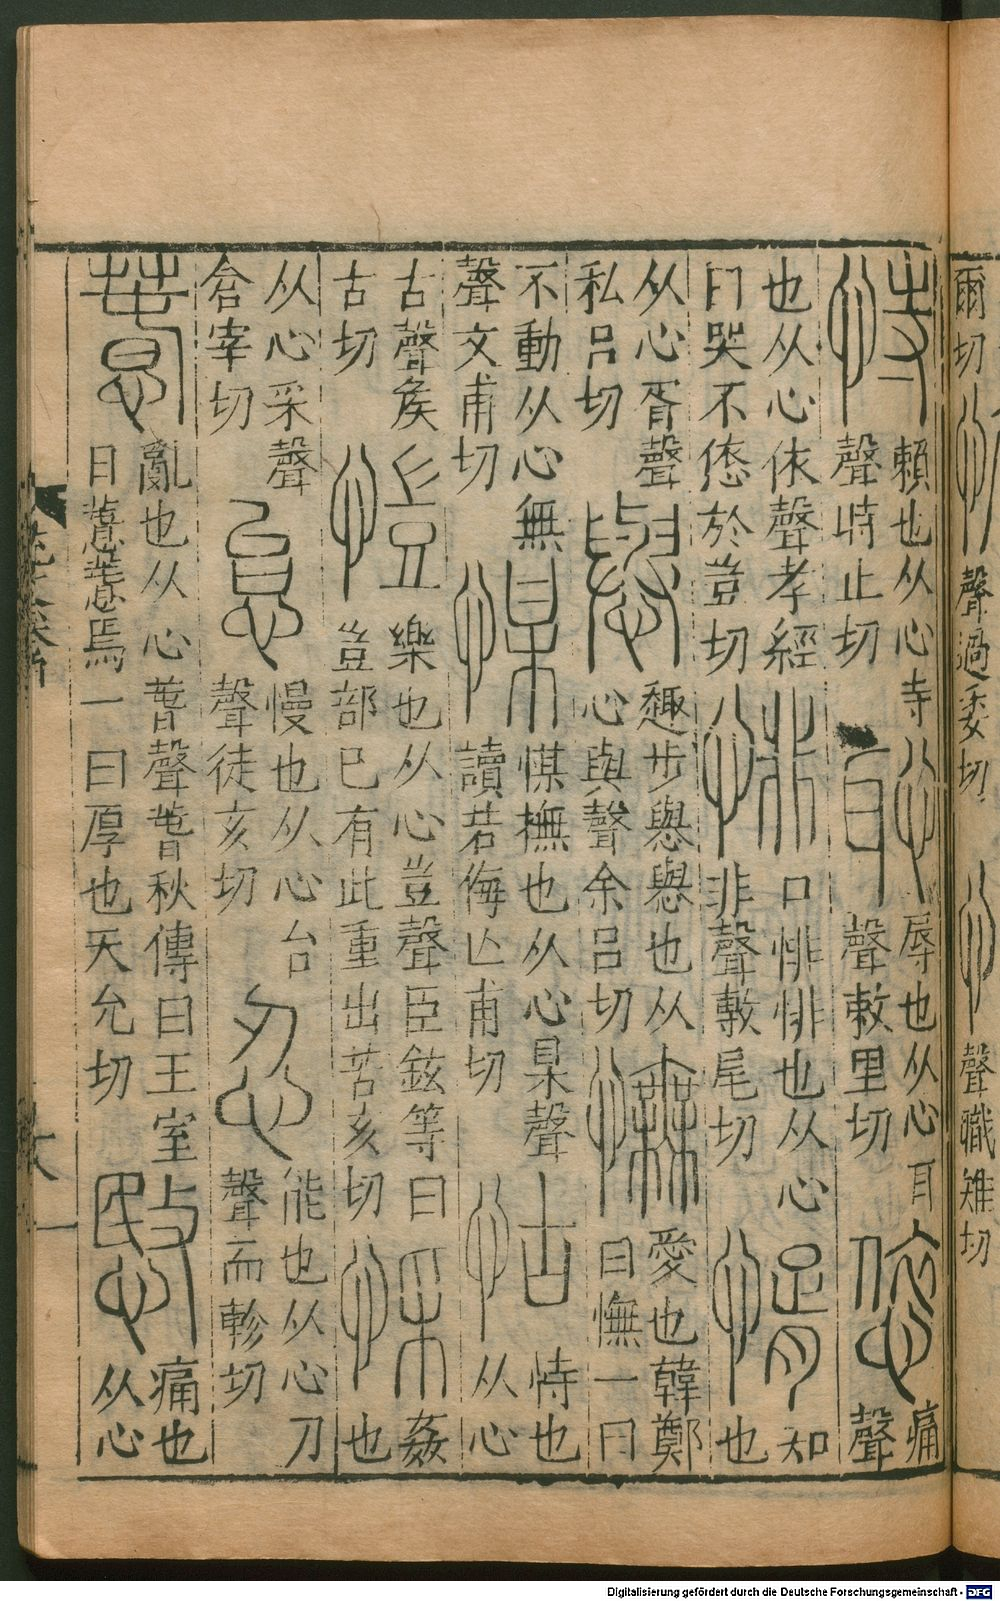 爾切
聲過委切
聲職雉切
恃
賴也从心寺
聲時止切
恥
辱也从心耳
聲敕里切
㥋
痛
聲
也从心依聲孝經
曰哭不㥋於豈切
悱
口悱悱也从心
非聲敷尾切
㥠
知
也
从心胥聲
私呂切
㦛
趣步㦛㦛也从
心與聲余呂切
憮
愛也韓鄭
曰憮一曰
不動从心無
聲文甫切
𢜮
𢜮撫也从心某聲
讀若侮亾甫切
怙
恃也
从心
古聲矦
古切
愷
樂也从心豈聲臣鉉等曰
豈部已有此重出苦亥切
㥒
姦
也
从心采聲
倉宰切
怠
慢也从心台
聲徒亥切
忍
能也从心刀
聲而軫切
惷
亂也从心萅聲萅秋傳曰王室
日惷惷焉一曰厚也尺允切
慜
痛也
从心
六
Digitalisierung gefördert durch die Deutsche Forschungsgemeinschaft - DFG